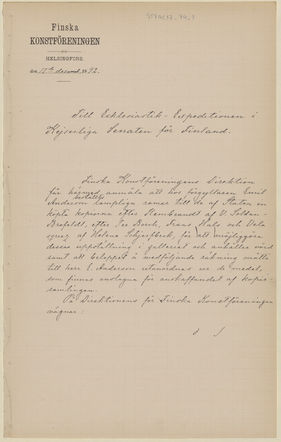 Finska
KONSTFÖRENINGEN
HELSINGFORS
Till Ecklesiastik-Expeditionen i
Kejserliga Senaten för Finland.
Finska Konstföreningens Direktion
får högmod. anmäla att hos förgyllaren Emil
beställts
Anderson lämpliga ramar till de af Staten in
köpta kopiorna efter Rembrandt af V. Soldan-
Brofeldt, efter Ter Borch, Frans Hals och Vela
af Helena Schjerfbeck, för att möjliggöra
deras uppställning i galleriet och anhålles värd
samt att beloppet å medföljande räkning måtte
till herr E. Anderson utanordnas ur de medel,
som finnas anslagna för anskaffandet af kopie-
samlingen.
På Direktionens för Finska Konstföreningen
vägnar: